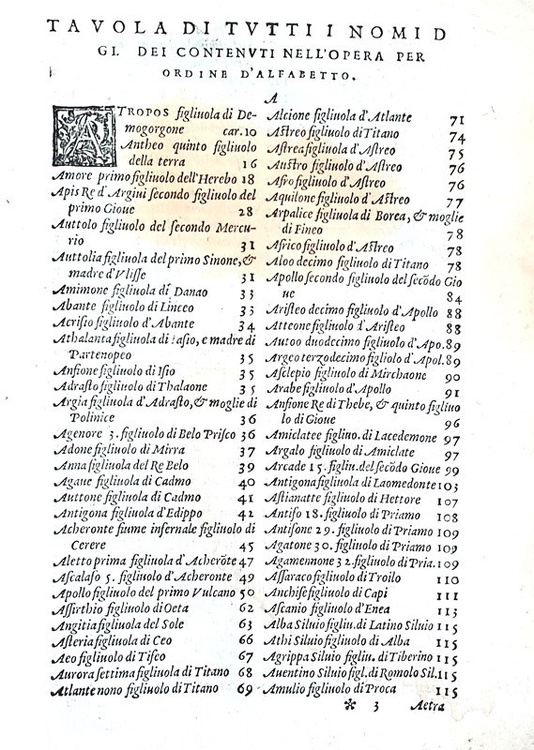 TAVOLA DI TVTTI I NOMI D
GL DEI CONTENVTI NELL'OPERA PER
ORDINE D'ALFABETTO.
A
ATROPOS figliuola di De-
mogorgone car. 10
Antheo quinto figliuolo
della terra 16
Amore primo figliuolo dell'Herebo 18
Apis Re d'Argiui secondo figliuolo del
primo Gioue 28
Auttolo figliuolo del secondo Mercu-
rio 31
Auttolia figliuola del primo Sinone, &
madre d'Vlisse 31
Amimone figliuola di Danao 33
Abante figliuolo di Linceo 33
Acrisio figliuolo d'Abante 34
Athalanta figliuola di Iasio, e madre di
Partenopeo 35
Anfione figliuolo di Isio 35
Adrasto figliuolo di Thalaone 35
Argia figliuola d'Adrasto, & moglie di
Polinice 36
Agenore 3. figliuolo di Belo Prisco 36
Adone figliuolo di Mirra 37
Anna figliuola del Re Belo 39
Agaue figliuola di Cadmo 40
Auttone figliuola di Cadmo 41
Antigona figliuola d'Edippo 42
Acheronte fiume infernale figliuolo di
Cerere 45
Aletto prima figliuola d'Acherōte 47
Ascalafo 5. figliuolo d'Acheronte 49
Apollo figliuolo del primo Vulcano 50
Assirthio figliuolo di Oeta 62
Angitia figliuola del Sole 63
Asteria figliuola di Ceo 66
Aeo figliuolo di Tifeo 67
Aurora settima figliuola di Titano 68
Atlante nono figliuolo di Titano 69
Alcione figliuola d'Atlante 71
Astreo figliuolo di Titano 74
Astrea figliuola d'Astreo 75
Austro figliuolo d'Astreo 76
Afro figliuolo d'Astreo 76
Aquilone figliuolo d'Astreo 77
Arpalice figliuola di Borea, & moglie
di Fineo 78
Africo figliuolo d'Astreo 78
Aloo decimo figliuolo di Titano 78
Apollo secondo figliuolo del secōdo Gio
ue 84
Aristeo decimo figliuolo d'Apollo 88
Atteone figliuolo d'Aristeo 88
Autoo duodecimo figliuolo d'Apo. 89
Argeo terzodecimo figliolo d'Apol. 89
Asclepio figliuolo di Mirchaone 90
Arabe figliuolo d'Apollo 91
Anfione Re di Thebe, & quinto figliuo
lo di Gioue 96
Amiclatee figliuo. di Lacedemone 97
Argalo figliuolo di Amiclate 97
Arcade 15. figliu. del secōdo Gioue 99
Antigona figliuola di Laomedonte 103
Astianatte figliuolo di Hettore 107
Antifo 18. figliuolo di Priamo 108
Antifone 29. figliuolo di Priamo 109
Agatone 30. figliuolo di Priamo 109
Agamennone 32. figliuolo di Pria. 109
Assaraco figliuolo di Troilo 110
Anchise figliuolo di Capi 111
Ascanio figliuolo d'Enea 113
Alba Siluio figliu. di Latino Siluio 115
Athi Siluio figliuolo di Alba 115
Agrippa Siluio figliu. di Tiberino 115
Auentino Siluio figl. di Romolo Sil. 115
Amulio figliuolo di Proca 115
* 3 Aetra